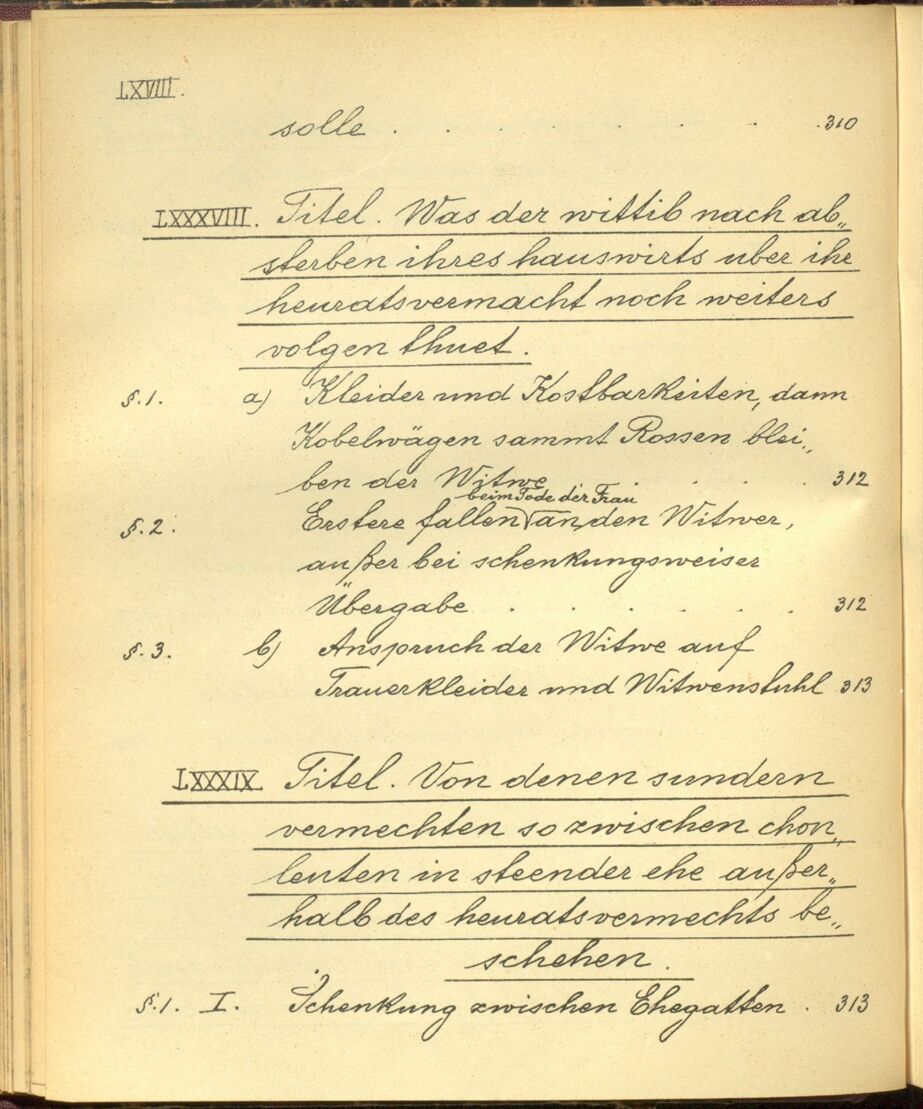 LXVIII.
solle . . . . . . . 310
LXXXVIII. Titel. Was der wittib nach ab„
sterben ihres hauswirts uber ihr
heuratsvermacht noch weiters
volgen thuet.
§.1. a) Kleider und Kostbarkeiten, dann
Kobelwägen sammt Rossen blei„
ben der Witwe . . . . 312
beim Tode der Frau
§.2. Erstere fallen √ an den Witwer,
außer bei schenkungsweiser
Übergabe . . . . . . 312
§.3. b) Anspruch der Witwe auf
Trauerkleider und Witwenstuhl 313
LXXXIX. Titel. Von denen sundern
vermechten so zwischen chon„
leuten in steender ehe außer„
halb des heuratsvermechts be„
schehen.
§.1. I. Schenkung zwischen Ehegatten . 313